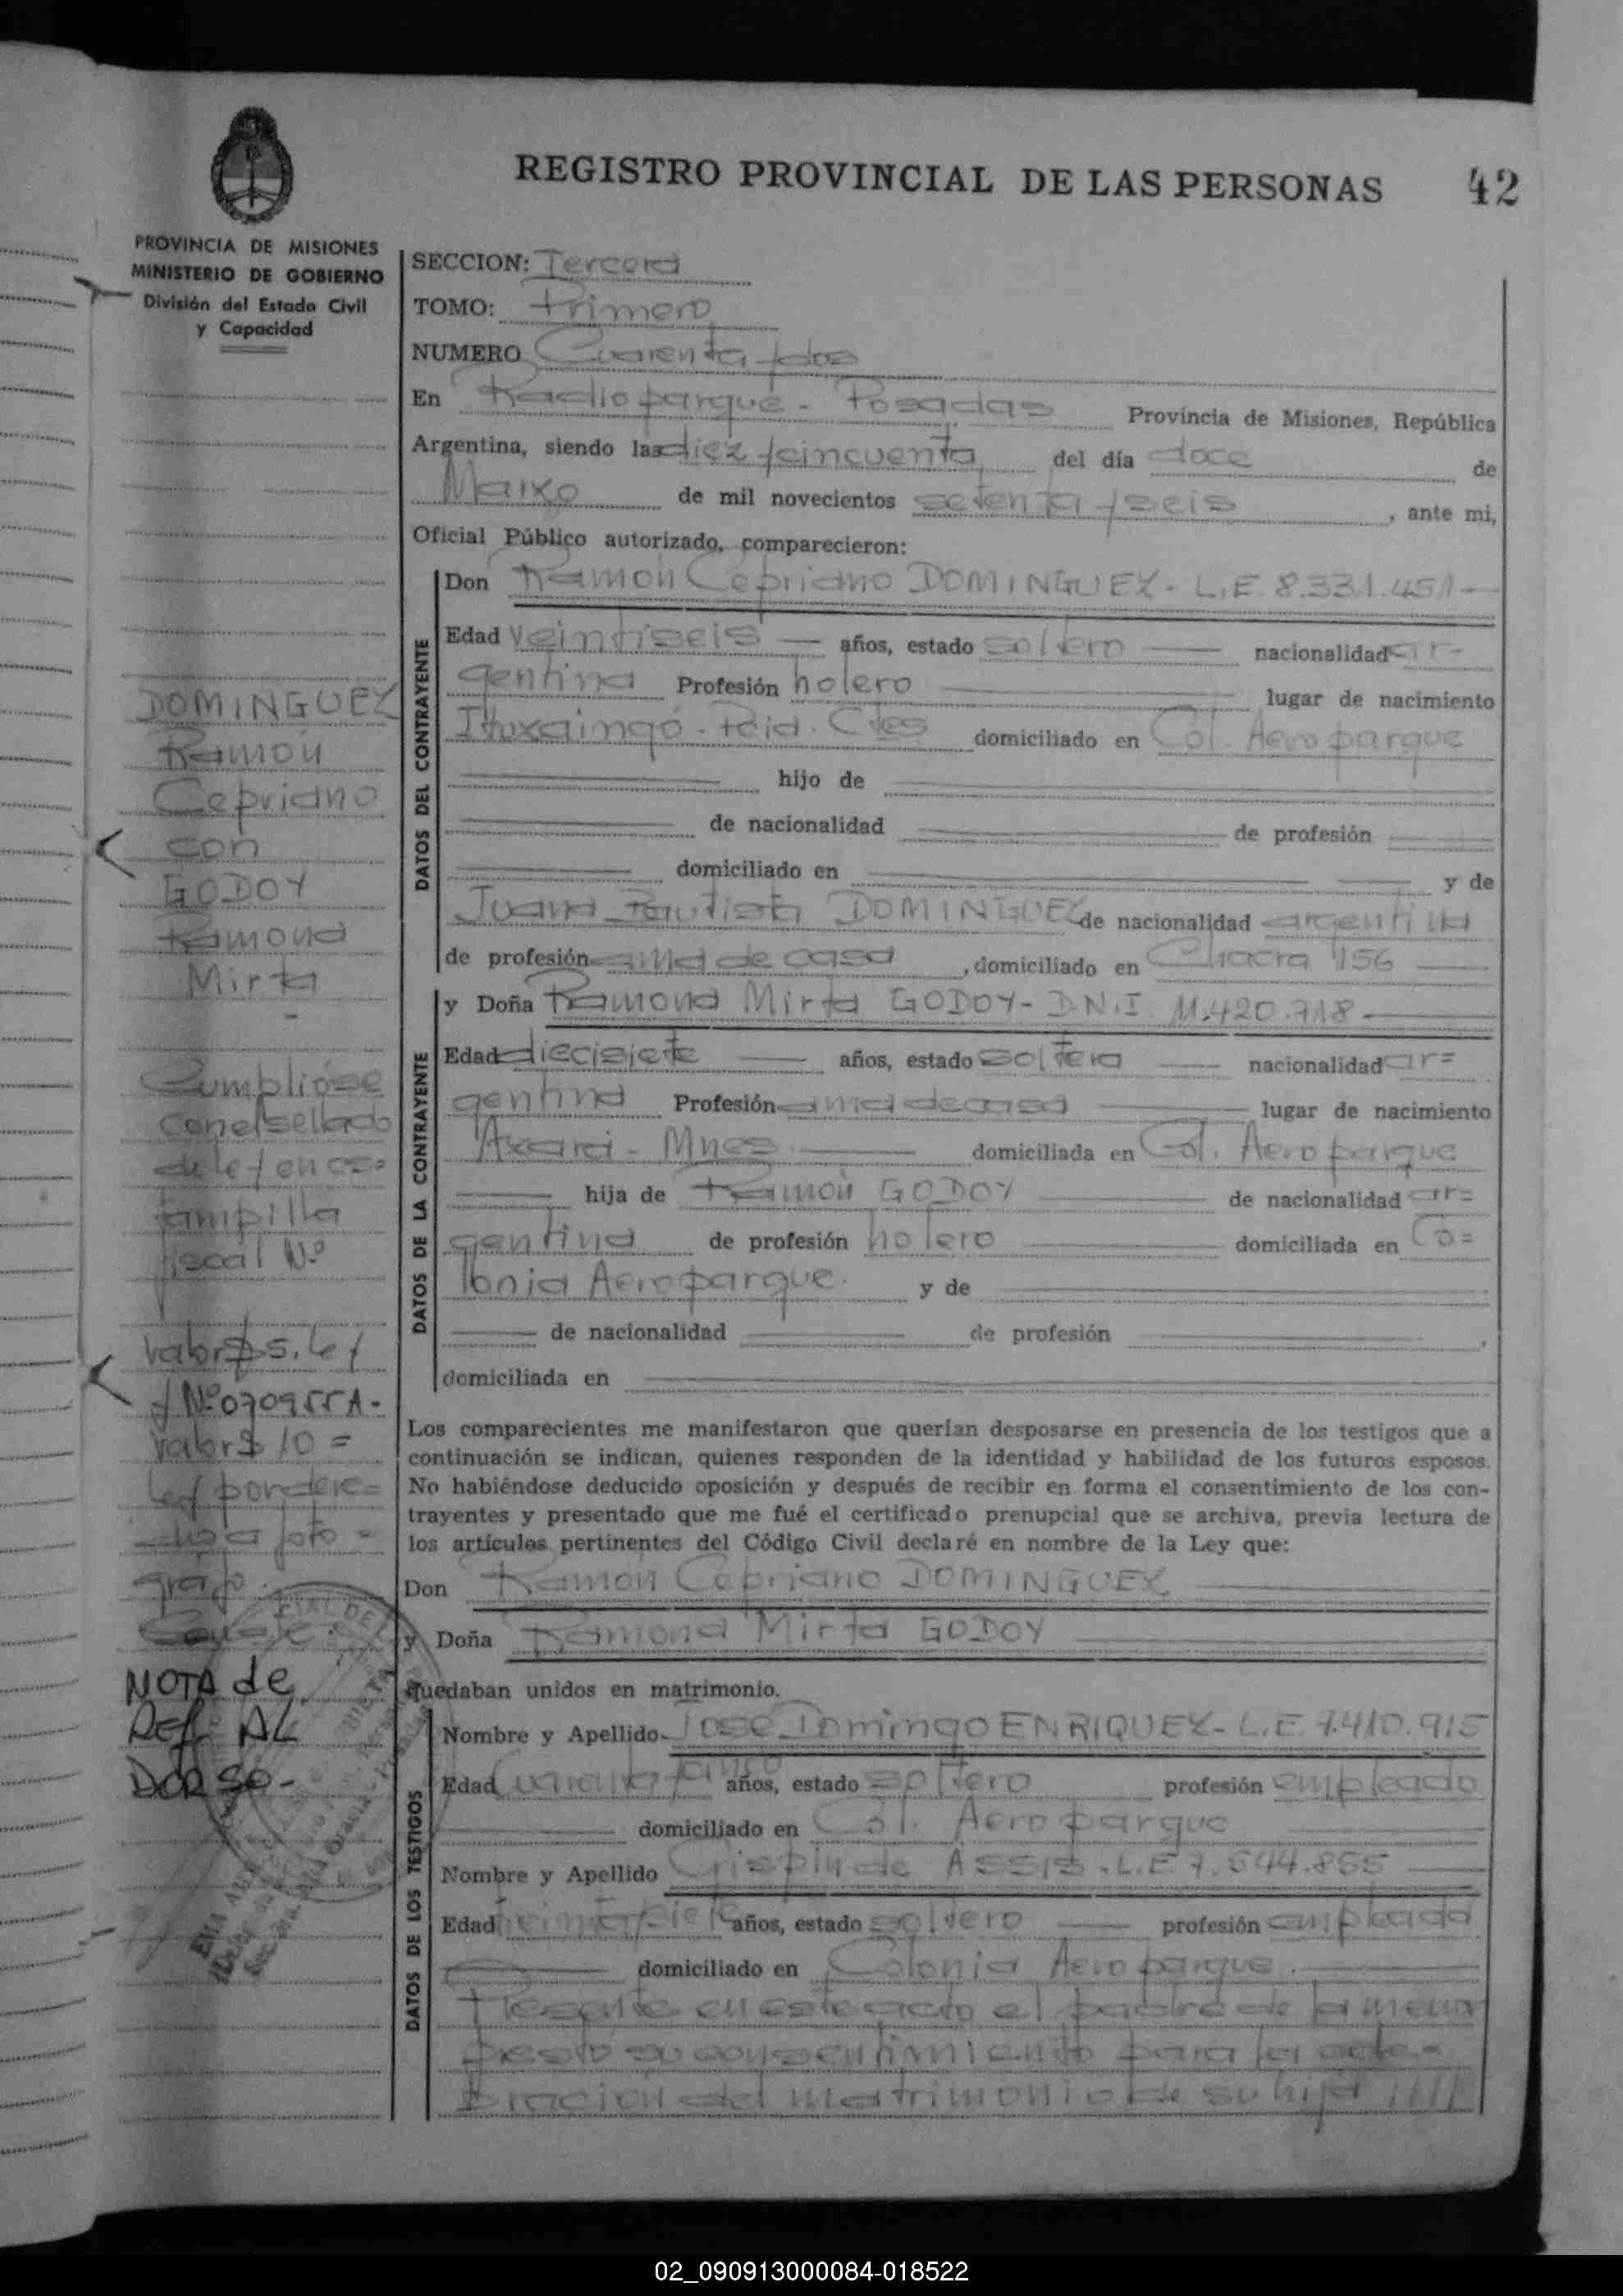 REGISTRO PROVINCIAL DE LAS PERSONAS 42
PROVINCIA DE MISIONES
MINISTERIO DE GOBIERNO
División del Estado Civil
y Capacidad
SECCION: Tercera
TOMO: Primero
NUMERO Cuarenta y dos
En Radioparque - Posadas Provincia de Misiones, República
Argentina, siendo las diez y cincuenta del día doce de
Marzo de mil novecientos setenta y seis, ante mi,
Oficial Público autorizado, comparecieron:
DATOS DEL CONTRAYENTE
Don Ramón Cepriano DOMINGUEZ - L.E 8.331.451
Edad veintiseis años, estado soltero nacionalidad ar-
gentina Profesión holero lugar de nacimiento
Ituzaingó - Pcia. Ctes domiciliado en Col. Aeroparque
hijo de
de nacionalidad de profesión
domiciliado en y de
Juana Bautista DOMINGUEZ de nacionalidad argentina
de profesión ama de casa, domiciliado en Chacra 156
DATOS DE LA CONTRAYENTE
y Doña Ramona Mirta GODOY - D.N.I. 11.420.718
Edad diecisiete años, estado soltera nacionalidad ar=
gentina Profesión ama de casa lugar de nacimiento
Azara - Mnes domiciliada en Col. Aeroparque
hija de Ramón GODOY de nacionalidad ar=
gentina de profesión holero domiciliada en Co=
lonia Aeroparque. y de
de nacionalidad de profesión
domiciliada en
Los comparecientes me manifestaron que querían desposarse en presencia de los testigos que a
continuación se indican, quienes responden de la identidad y habilidad de los futuros esposos.
No habiéndose deducido oposición y después de recibir en forma el consentimiento de los con-
trayentes y presentado que me fué el certificado prenupcial que se archiva, previa lectura de
los artículos pertinentes del Código Civil declaré en nombre de la Ley que:
Don Ramón Cepriano DOMINGUEZ
y Doña Ramona Mirta GODOY
quedaban unidos en matrimonio.
DATOS DE LOS TESTIGOS
Nombre y Apellido José Domingo ENRIQUEZ - L.E. 7.410.915
Edad años, estado soltero profesión empleado
domiciliado en Col. Aeroparque
Nombre y Apellido Crispin de ASSIS. L.E 7.544.855
Edad treinta y siete años, estado soltero profesión empleado
domiciliado en Colonia Aeroparque.
Presente en este acto el padre de la menor
presto su consentimiento para la cele=
bración del matrimonio de su hija ////
DOMINGUEZ
Ramón
Cepriano
con
GODOY
Ramona
Mirta
-
Cumplióse
con el sellado
de ley en es=
tampilla
fiscal Nº
valor $ 5. Ley
y Nº 070955A-
valor $ 10 =
Ley
foto =
graf
NOTA de
Ref. AL
DORSO-
02_090913000084-018522